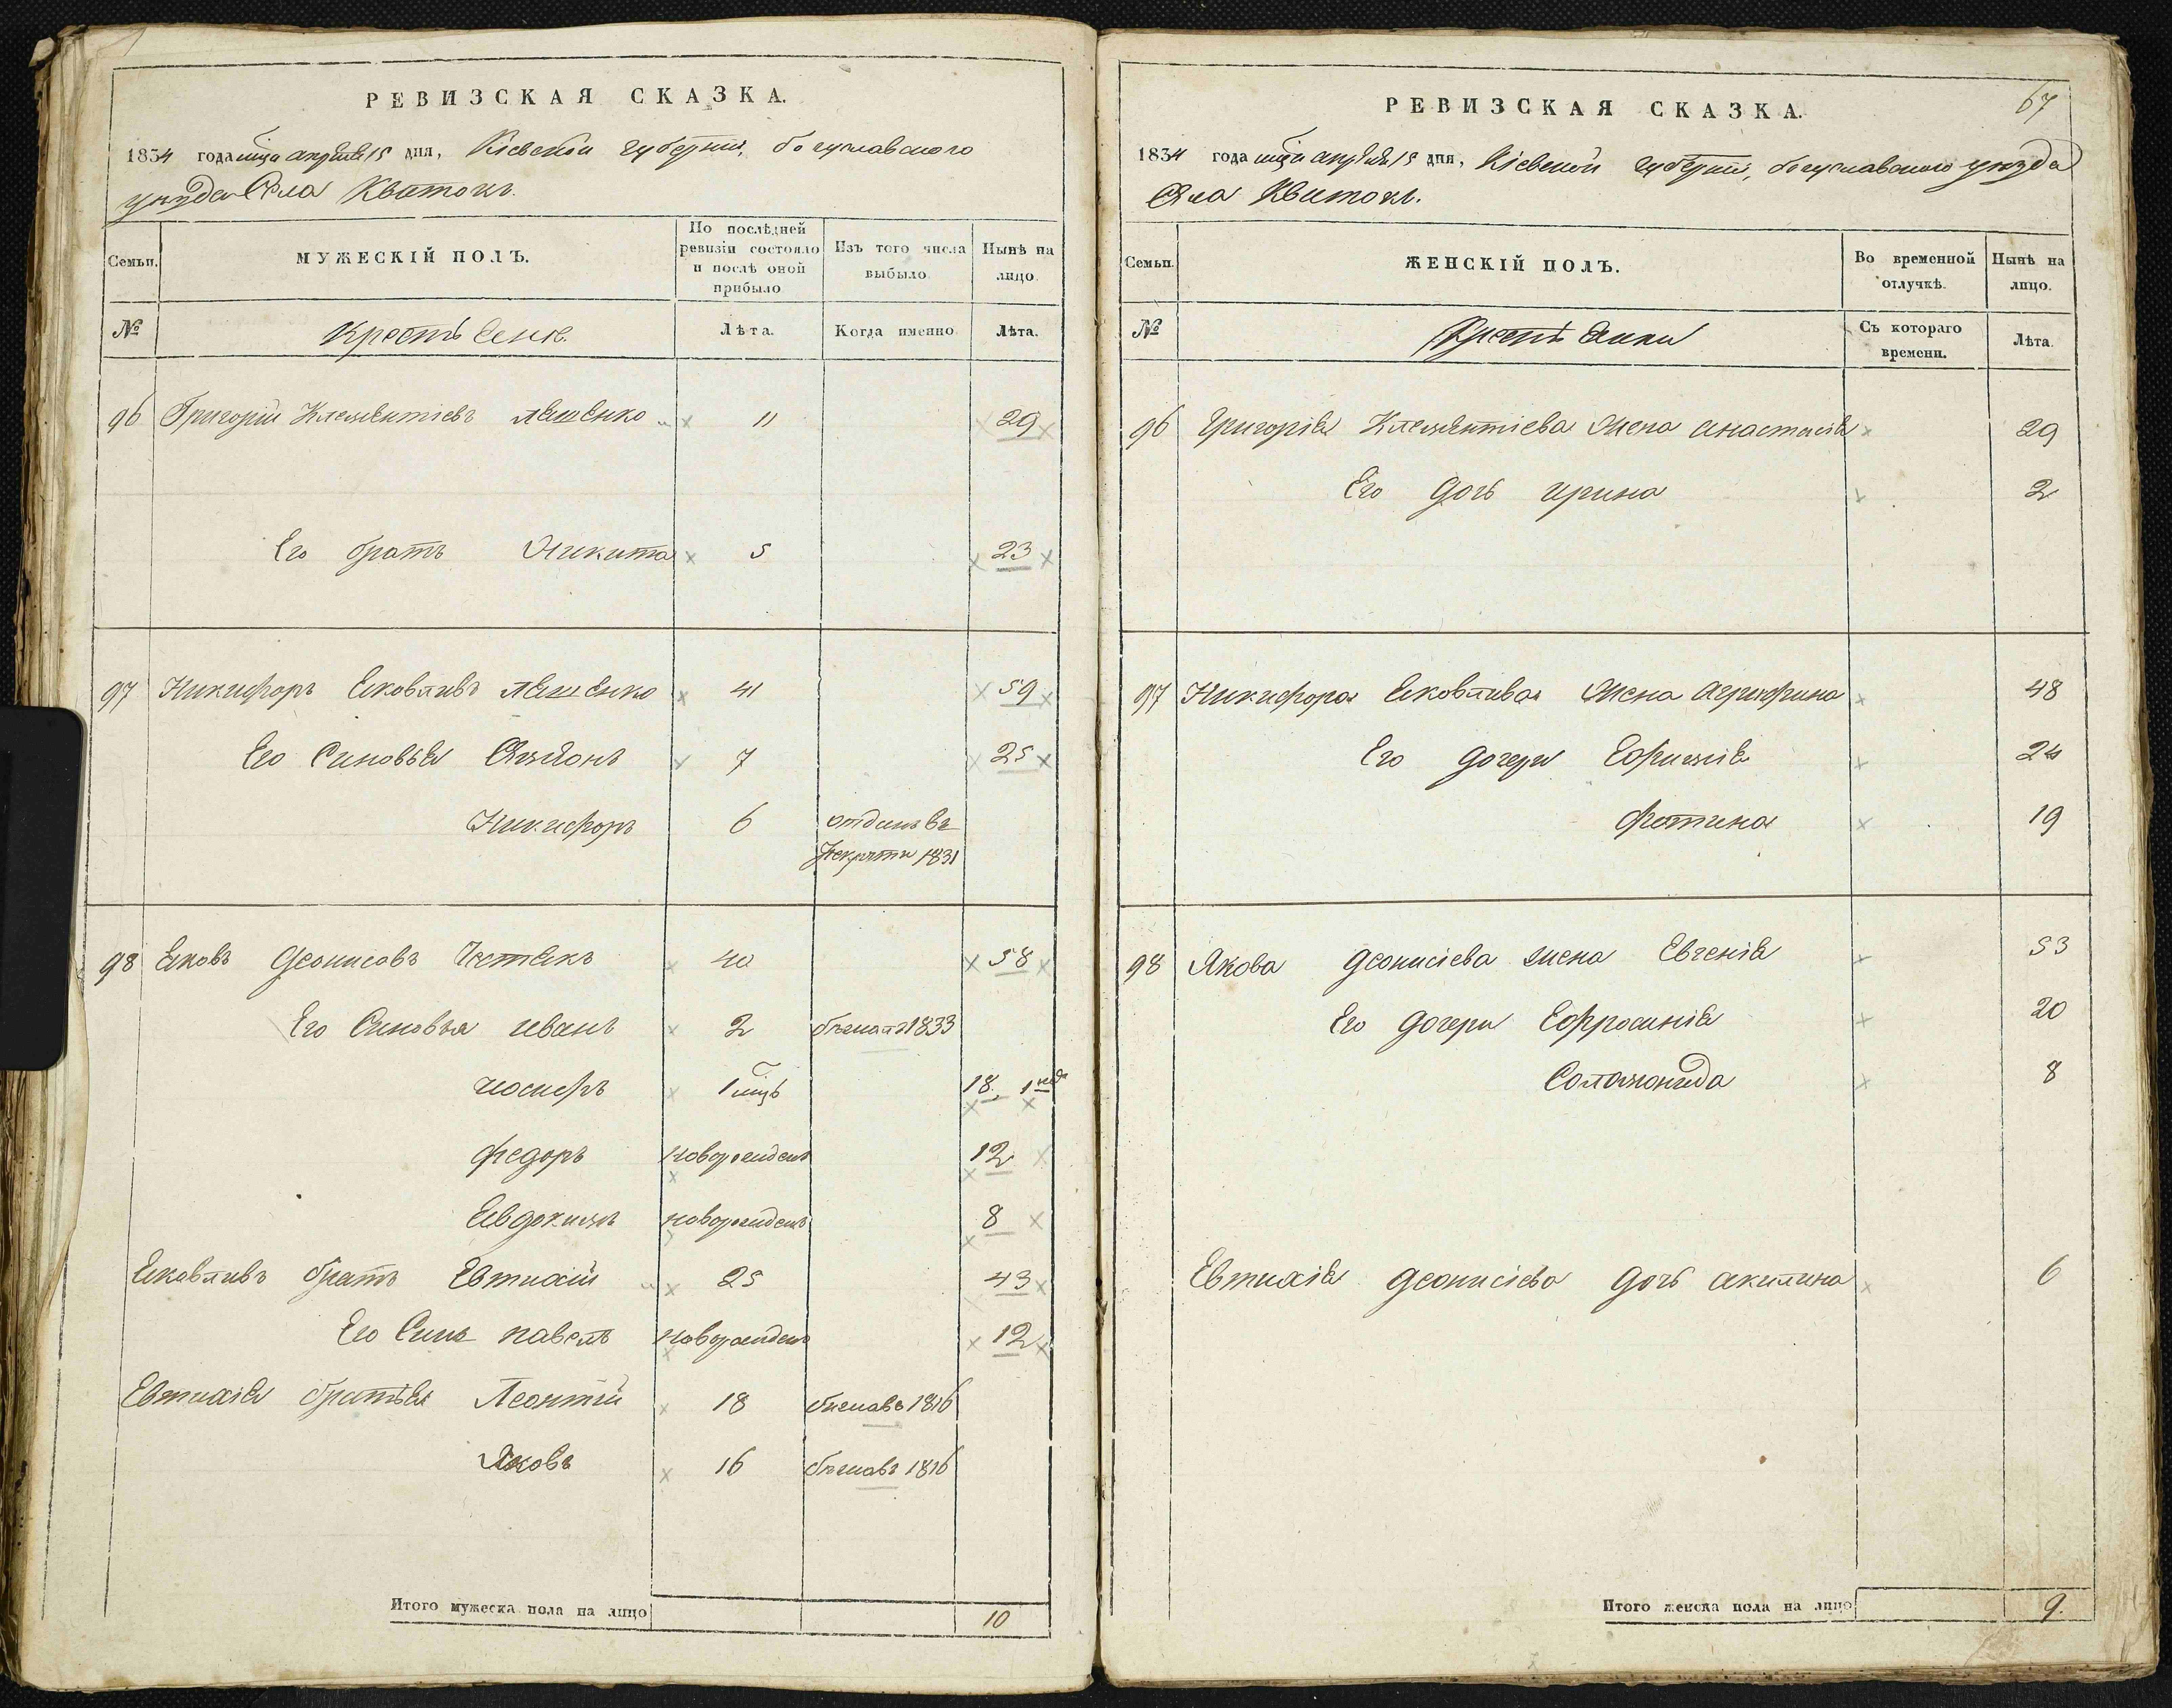 РЕВИЗСКАЯ СКАЗКА.
1834 года мца апреля 15 дня, Кіевской губерніи, богуславского
уезда Села Квитокъ.
Семьи. МУЖЕСКІЙ ПОЛЪ. По послѣдней ревизіи состояло и послѣ оной прибыло Изъ того числа выбыло Нынѣ на лицо.
№ Крестьяне. Лѣта. Когда именно Лѣта.
96 Григорій Клементіевъ Ляшенко 11 29
Его братъ Никита 5 23
97 Никифоръ Яковливъ Ляшенко 41 59
Его Синовья Семіонъ 7 25
Никифоръ 6 отданъ въ
Рекруты 1831
98 Яковъ Деонисовъ 40 58
Его Синовья иванъ 2 бежалъ 1833
иосифъ 1 мцъ 18. 1
федоръ новорожденъ 12
Евдокимъ новорожденъ 8
Яковливъ братъ Евтихій 25 43
Его Синъ павелъ новорожденъ 12
Евтихія братья Леонтій 18 1816
Яковъ 16 1816
Итого мужеска пола на лицо 10
67
РЕВИЗСКАЯ СКАЗКА.
1834 года мца апреля 15 дня, Кіевской губерніи, богуславского уезда
Села Квитокъ.
Семьи. ЖЕНСКІЙ ПОЛЪ. Во временной отлучкѣ. Нынѣ на лицо.
№ Крестьянки Съ котораго времени. Лѣта.
96 Григорія Клементіева Жена анастасія 29
Его дочь ирина 2
97 Никифора Яковлива Жена агрифина 48
Его дочери Ефимія 24
фотина 19
98 Якова деонисіева жена Евгенія 53
Его дочери Ефросинія 20
Соломонида 8
Евтихія деонисіева дочь акилина 6
Итого женска пола на лицо 9.